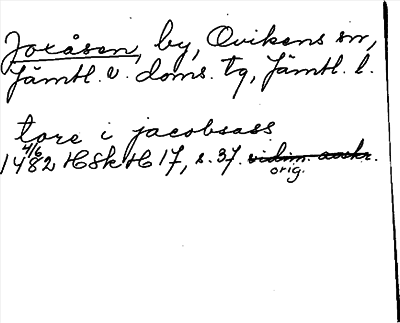 Joxåsen, by, Ovikens sn,
Jämtl. v. doms. tg, Jämtl. l.
tore i jacobsass
1482 4/6 HSkH 17, s. 37. vidim. avskr.
orig.